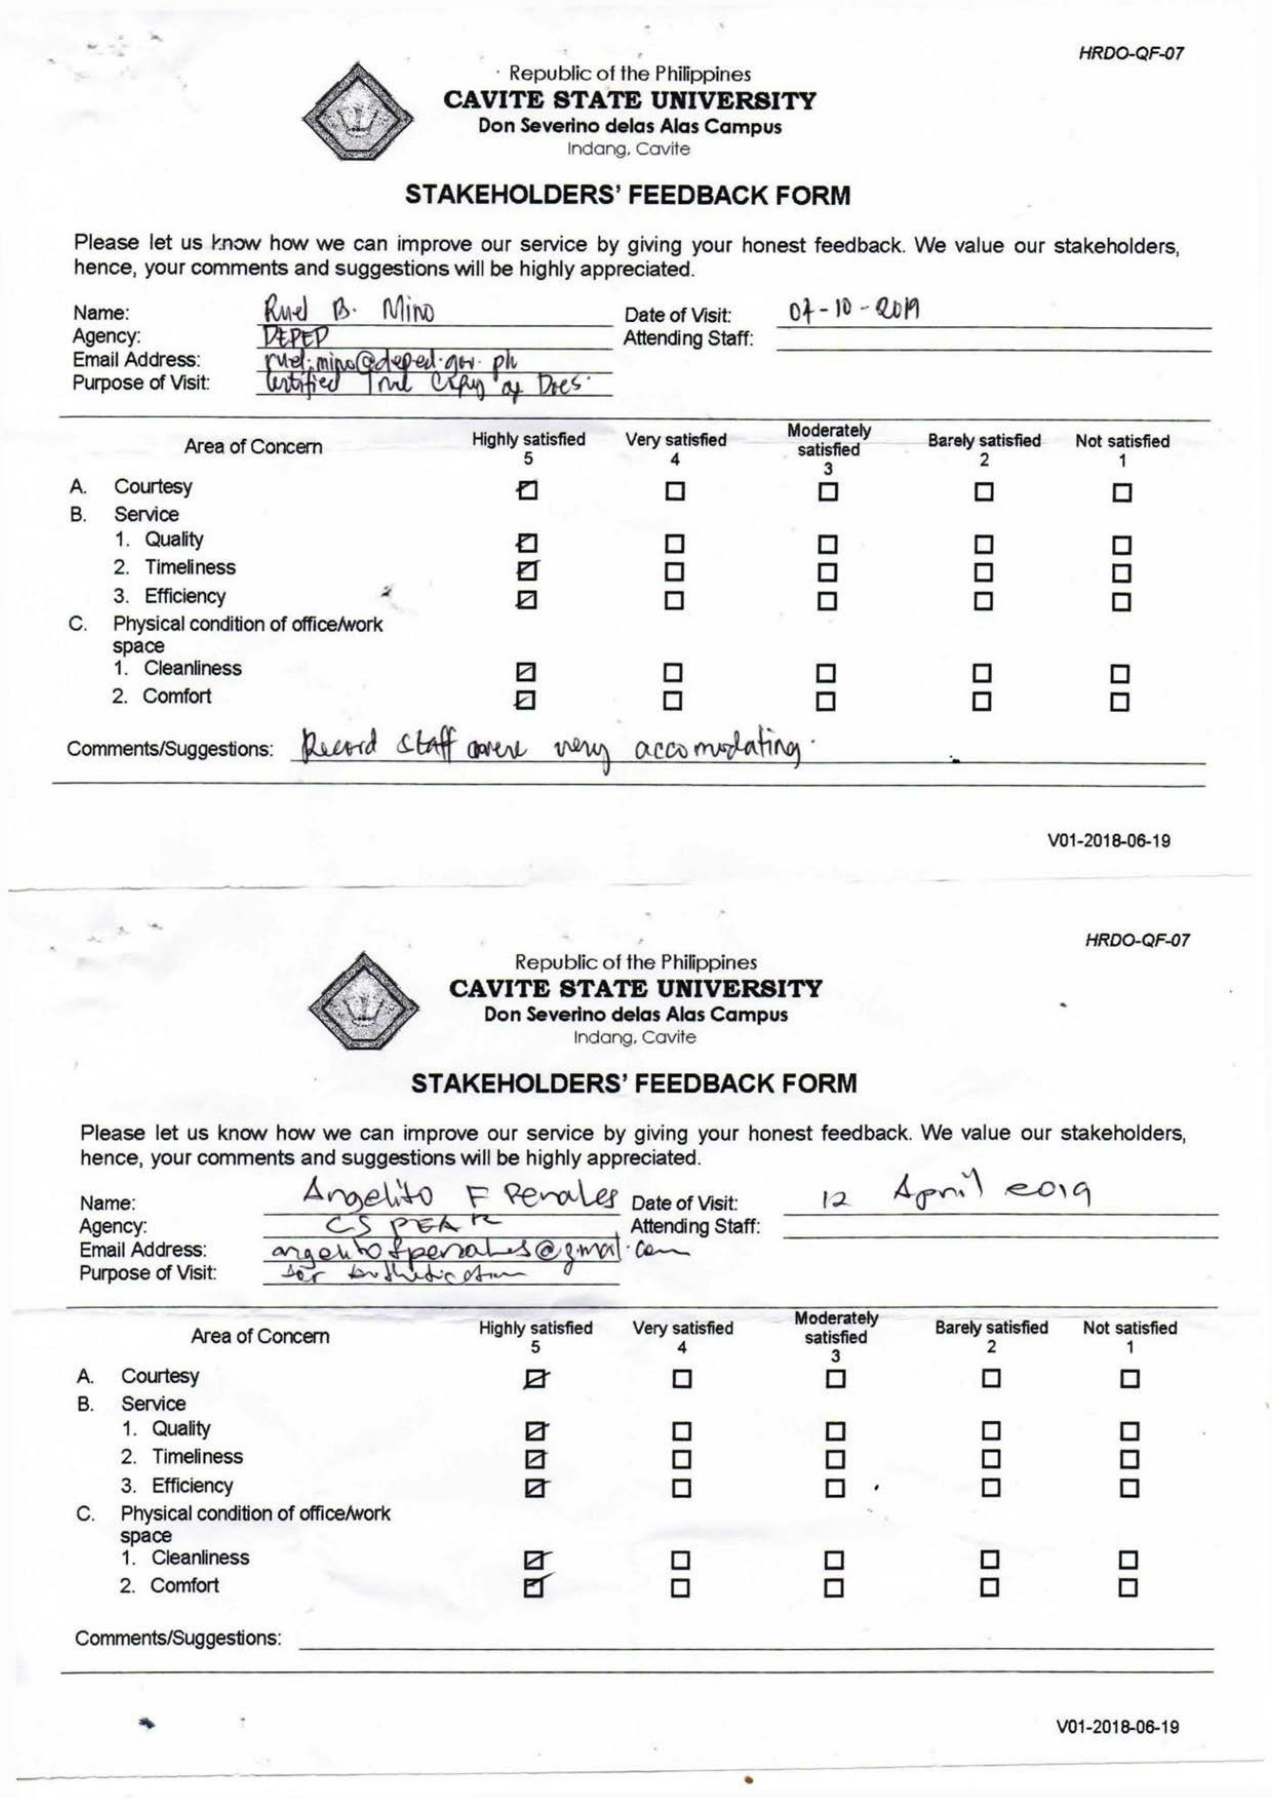 HRDO-QF-07
Republic of the Philippines
CAVITE STATE UNIVERSITY
Don Severino delas Alas Campus
Indang, Cavite
STAKEHOLDERS' FEEDBACK FORM
Please let us know how we can improve our service by giving your honest feedback. We value our stakeholders,
hence, your comments and suggestions will be highly appreciated.
Name: Ruel B. Mino Date of Visit: -10-2019
Agency: DEPED Attending Staff:
Email Address: ruel.mino@deped.gov.ph
Purpose of Visit: Certified True Copy of Docs.
Area of Concern Highly satisfied 5 Very satisfied 4 Moderately satisfied 3 Barely satisfied 2 Not satisfied 1
A. Courtesy
B. Service
1. Quality
2. Timeliness
3. Efficiency
C. Physical condition of office/work
space
1. Cleanliness
2. Comfort
Comments/Suggestions: Record staff were very accomodating.
V01-2018-06-19
HRDO-QF-07
Republic of the Philippines
CAVITE STATE UNIVERSITY
Don Severino delas Alas Campus
Indang, Cavite
STAKEHOLDERS' FEEDBACK FORM
Please let us know how we can improve our service by giving your honest feedback. We value our stakeholders,
hence, your comments and suggestions will be highly appreciated.
Name: Angelito F Penales Date of Visit: 12 April 2019
Agency: CSPEAR Attending Staff:
Email Address: angelitofpenales@gmail.com
Purpose of Visit: for authentication
Area of Concern Highly satisfied 5 Very satisfied 4 Moderately satisfied 3 Barely satisfied 2 Not satisfied 1
A. Courtesy
B. Service
1. Quality
2. Timeliness
3. Efficiency
C. Physical condition of office/work
space
1. Cleanliness
2. Comfort
Comments/Suggestions:
V01-2018-06-19